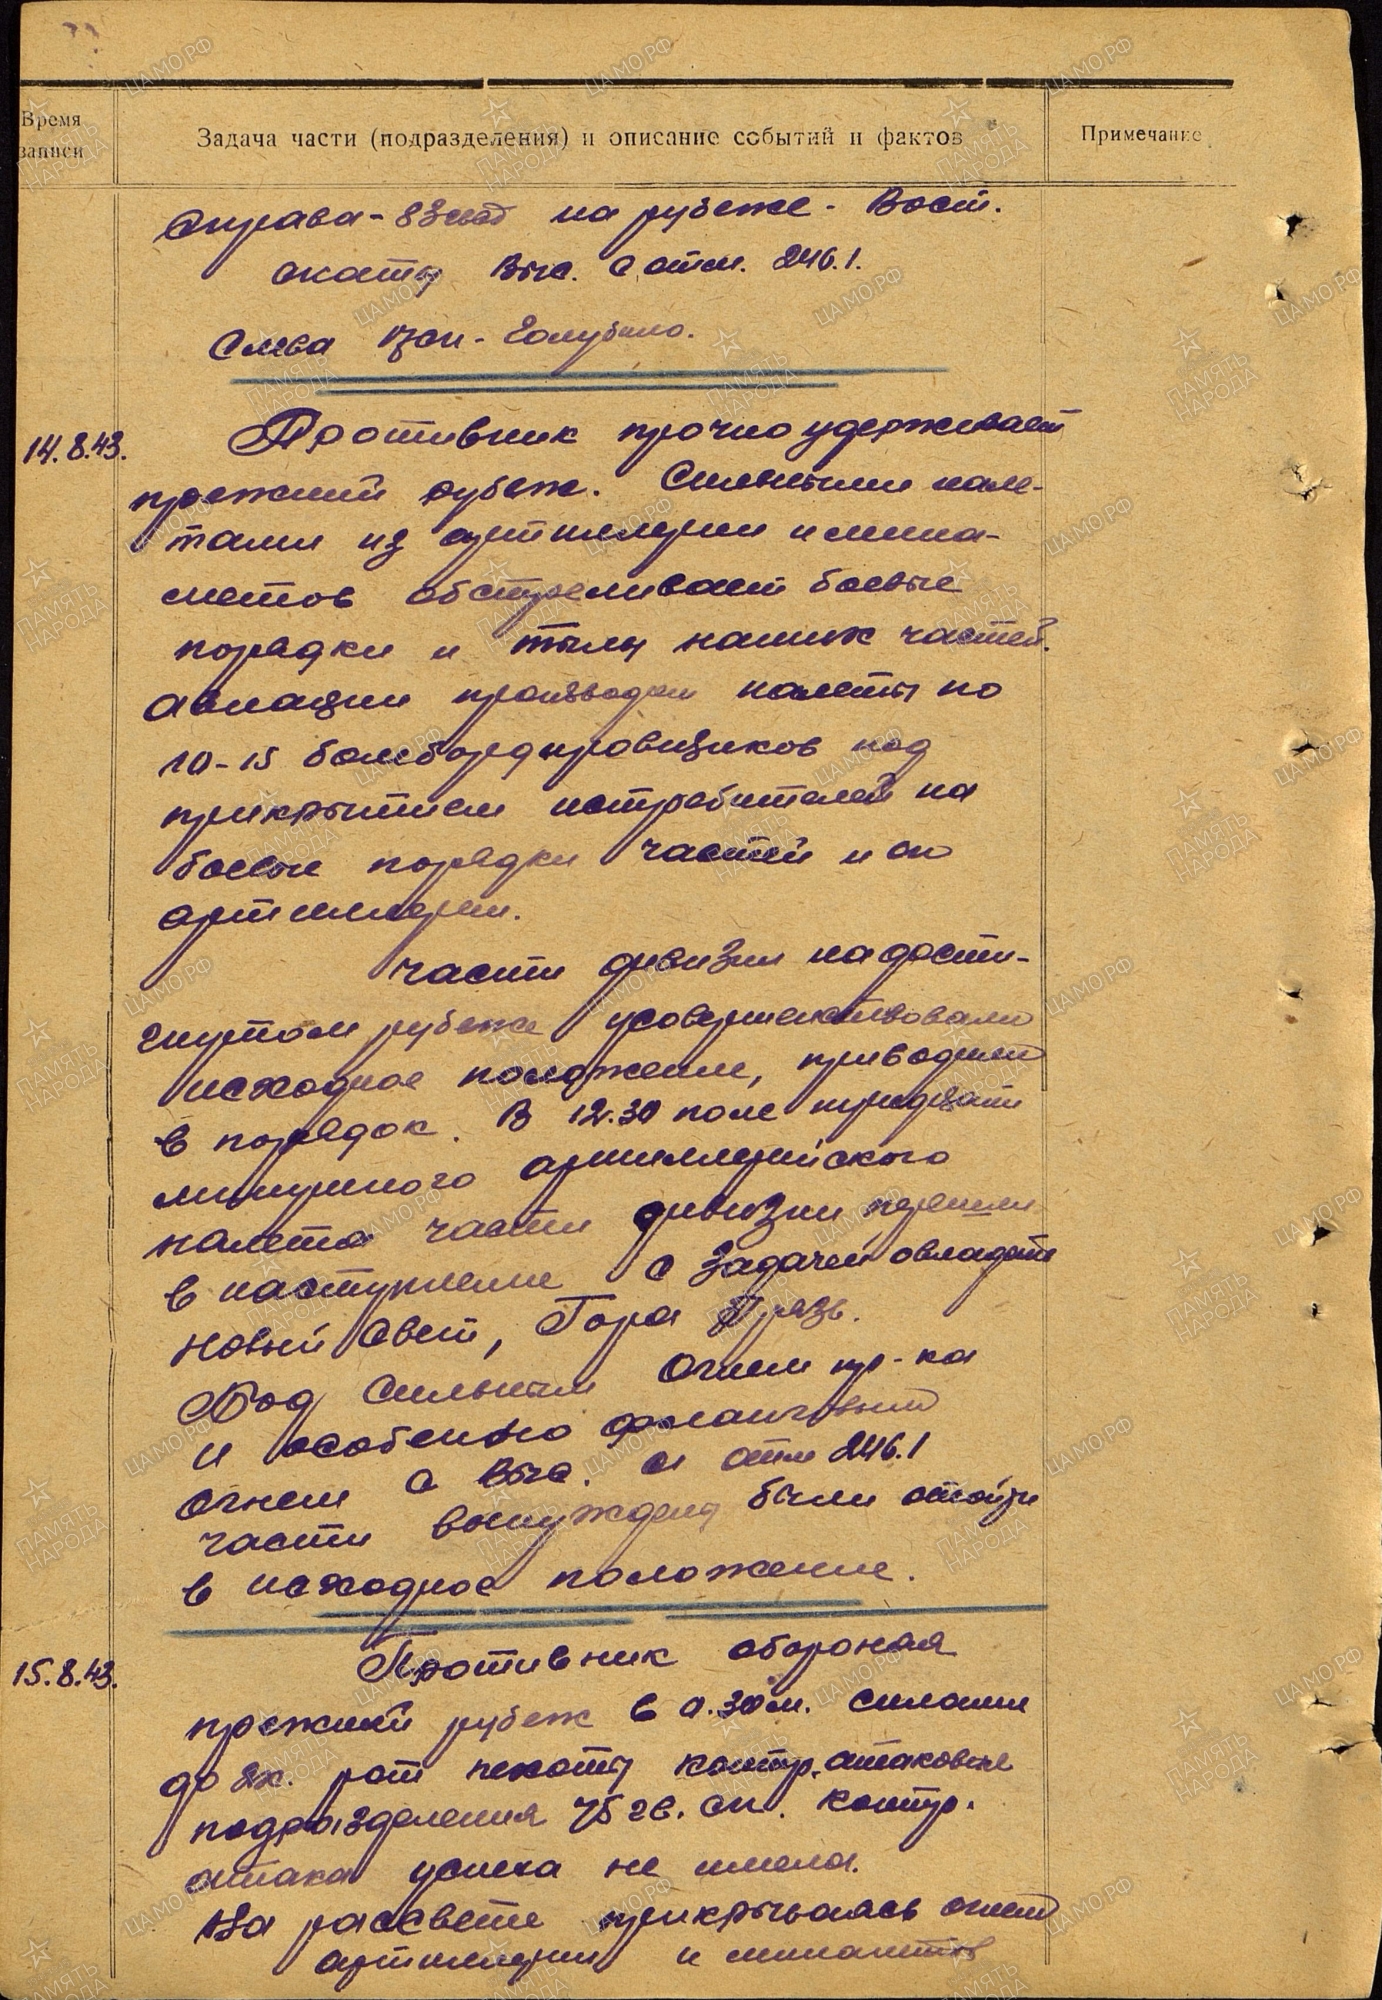 Время записи
Задача части (подразделения) и описание событий и фактов
Примечание
Справа - 83 гвсд на рубеже - Вост.
скаты Выс. с отм. 246.1.
Слева сп - Голубино.
14.8.43.
Противник прочно удерживает
прежний рубеж. Сильными нале-
тами из артиллерии и мино-
метов обстреливает боевые
порядки и тылы наших частей.
Авиации производит налеты по
10-15 бомбардировщиков под
прикрытием истребителей на
боевые порядки частей и оп
артиллерии.
Части дивизии на дости-
гнутом рубеже усовершенствовали
исходное положение, приводили
в порядок. В 12.30 после тридцати
минутного артиллерийского
налета части дивизии перешли
в наступление с задачей овладеть
Новый Свет, Гора Грязь.
Под сильным огнем пр-ка
и особенно фланговым
огнем с Выс. с отм 246.1
части вынуждены были отойти
в исходное положение.
15.8.43.
Противник обороняя
прежний рубеж в 0.30 м. силами
до 2х. рот пехоты контр.атаковал
подразделения 75 гв. сп. Контр.
атака успеха не имела.
На рассвете прикрываясь огнем
артиллерии и минометов